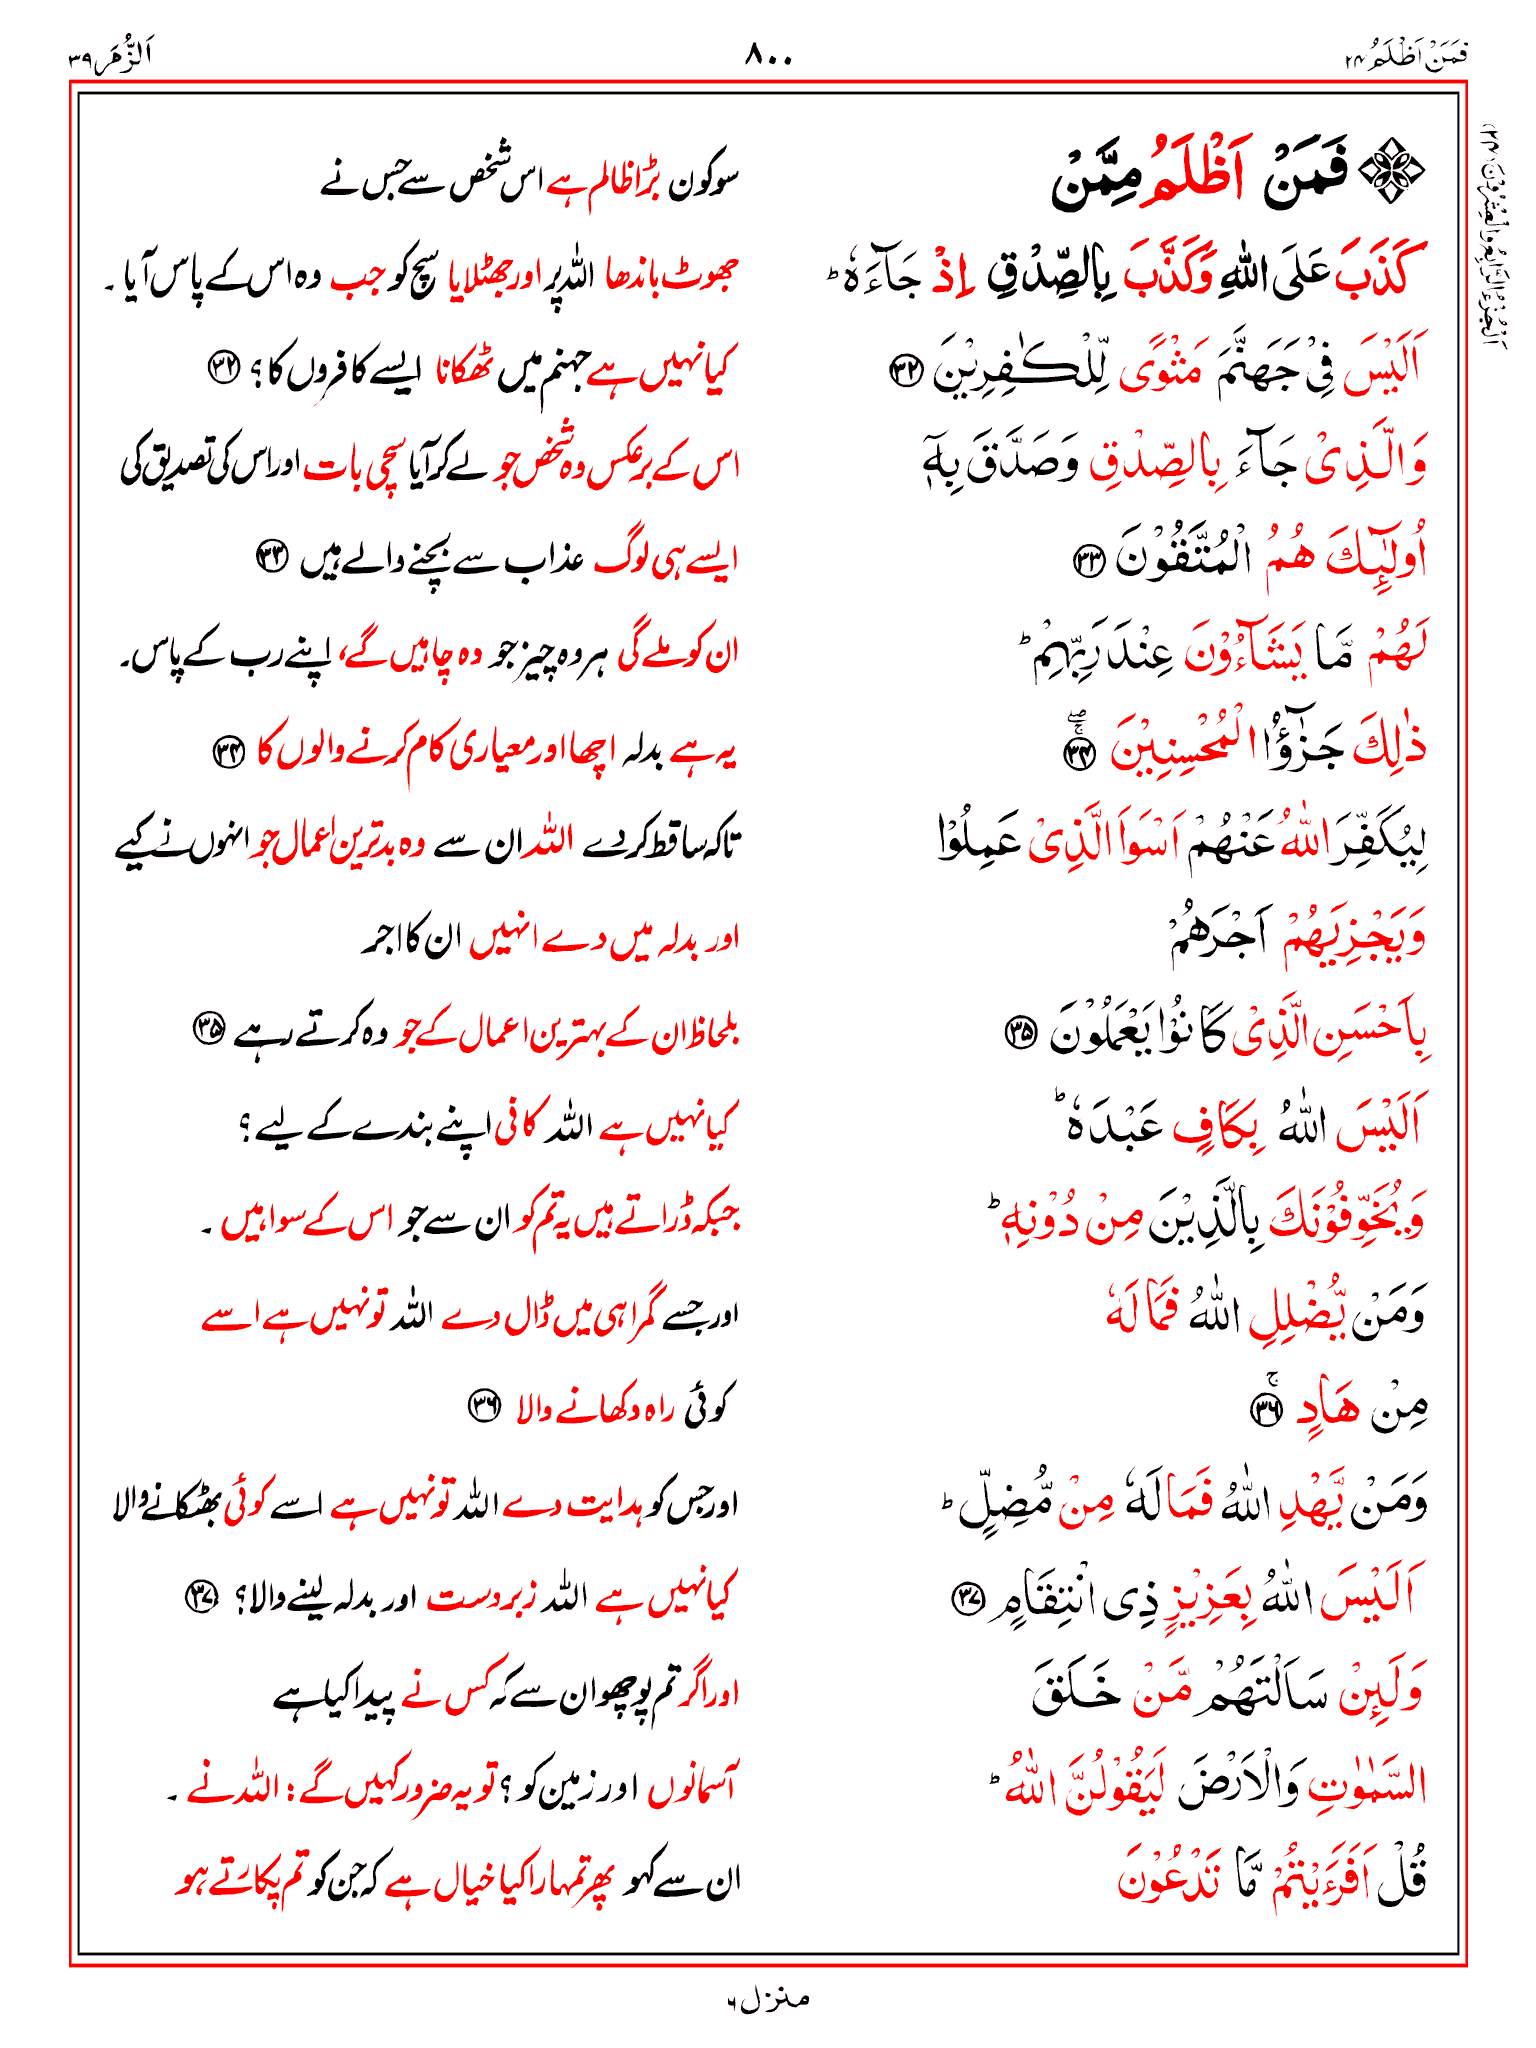 فَمَنْ اَظْلَمُ ۲۴ ۸۰۰ اَلزُّمَر ۳۹
اَلْجُزْءُ الرَّابِعُ وَالْعِشْرُوْنَ (۲۴)
فَمَنْ اَظْلَمُ مِمَّنْ سو کون بڑا ظالم ہے اس شخص سے جس نے
كَذَبَ عَلَى اللّٰهِ وَكَذَّبَ بِالصِّدْقِ اِذْ جَآءَهٗ ؕ جھوٹ باندھا اللہ پر اور جھٹلایا سچ کو جب وہ اس کے پاس آیا ۔
اَلَيْسَ فِيْ جَهَنَّمَ مَثْوًى لِّلْكٰفِرِيْنَ ۳۲ کیا نہیں ہے جہنم میں ٹھکانا ایسے کافروں کا؟ ۳۲
وَالَّذِيْ جَآءَ بِالصِّدْقِ وَصَدَّقَ بِهٖٓ اس کے برعکس وہ شخص جو لے کر آیا سچی بات اور اس کی تصدیق کی
اُولٰٓئِكَ هُمُ الْمُتَّقُوْنَ ۳۳ ایسے ہی لوگ عذاب سے بچنے والے ہیں ۳۳
لَهُمْ مَّا يَشَآءُوْنَ عِنْدَ رَبِّهِمْ ؕ ان کو ملے گی ہر وہ چیز جو وہ چاہیں گے، اپنے رب کے پاس۔
ذٰلِكَ جَزٰٓؤُا الْمُحْسِنِيْنَ ۳۴ یہ ہے بدلہ اچھا اور معیاری کام کرنے والوں کا ۳۴
لِيُكَفِّرَ اللّٰهُ عَنْهُمْ اَسْوَاَ الَّذِيْ عَمِلُوْا تاکہ ساقط کر دے اللہ ان سے وہ بدترین اعمال جو انہوں نے کیے
وَيَجْزِيَهُمْ اَجْرَهُمْ اور بدلہ میں دے انہیں ان کا اجر
بِاَحْسَنِ الَّذِيْ كَانُوْا يَعْمَلُوْنَ ۳۵ بلحاظ ان کے بہترین اعمال کے جو وہ کرتے رہے ۳۵
اَلَيْسَ اللّٰهُ بِكَافٍ عَبْدَهٗ ؕ کیا نہیں ہے اللہ کافی اپنے بندے کے لیے؟
وَيُخَوِّفُوْنَكَ بِالَّذِيْنَ مِنْ دُوْنِهٖ ؕ جبکہ ڈراتے ہیں یہ تم کو ان سے جو اس کے سوا ہیں ۔
وَمَنْ يُّضْلِلِ اللّٰهُ فَمَا لَهٗ اور جسے گمراہی میں ڈال دے اللہ تو نہیں ہے اسے
مِنْ هَادٍ ۳۶ کوئی راہ دکھانے والا ۳۶
وَمَنْ يَّهْدِ اللّٰهُ فَمَا لَهٗ مِنْ مُّضِلٍّ ؕ اور جس کو ہدایت دے اللہ تو نہیں ہے اسے کوئی بھٹکانے والا
اَلَيْسَ اللّٰهُ بِعَزِيْزٍ ذِى انْتِقَامٍ ۳۷ کیا نہیں ہے اللہ زبردست اور بدلہ لینے والا؟ ۳۷
وَلَئِنْ سَاَلْتَهُمْ مَّنْ خَلَقَ اور اگر تم پوچھو ان سے کہ کس نے پیدا کیا ہے
السَّمٰوٰتِ وَالْاَرْضَ لَيَقُوْلُنَّ اللّٰهُ ؕ آسمانوں اور زمین کو؟ تو یہ ضرور کہیں گے: اللہ نے ۔
قُلْ اَفَرَءَيْتُمْ مَّا تَدْعُوْنَ ان سے کہو پھر تمہارا کیا خیال ہے کہ جن کو تم پکارتے ہو
منزل ۶